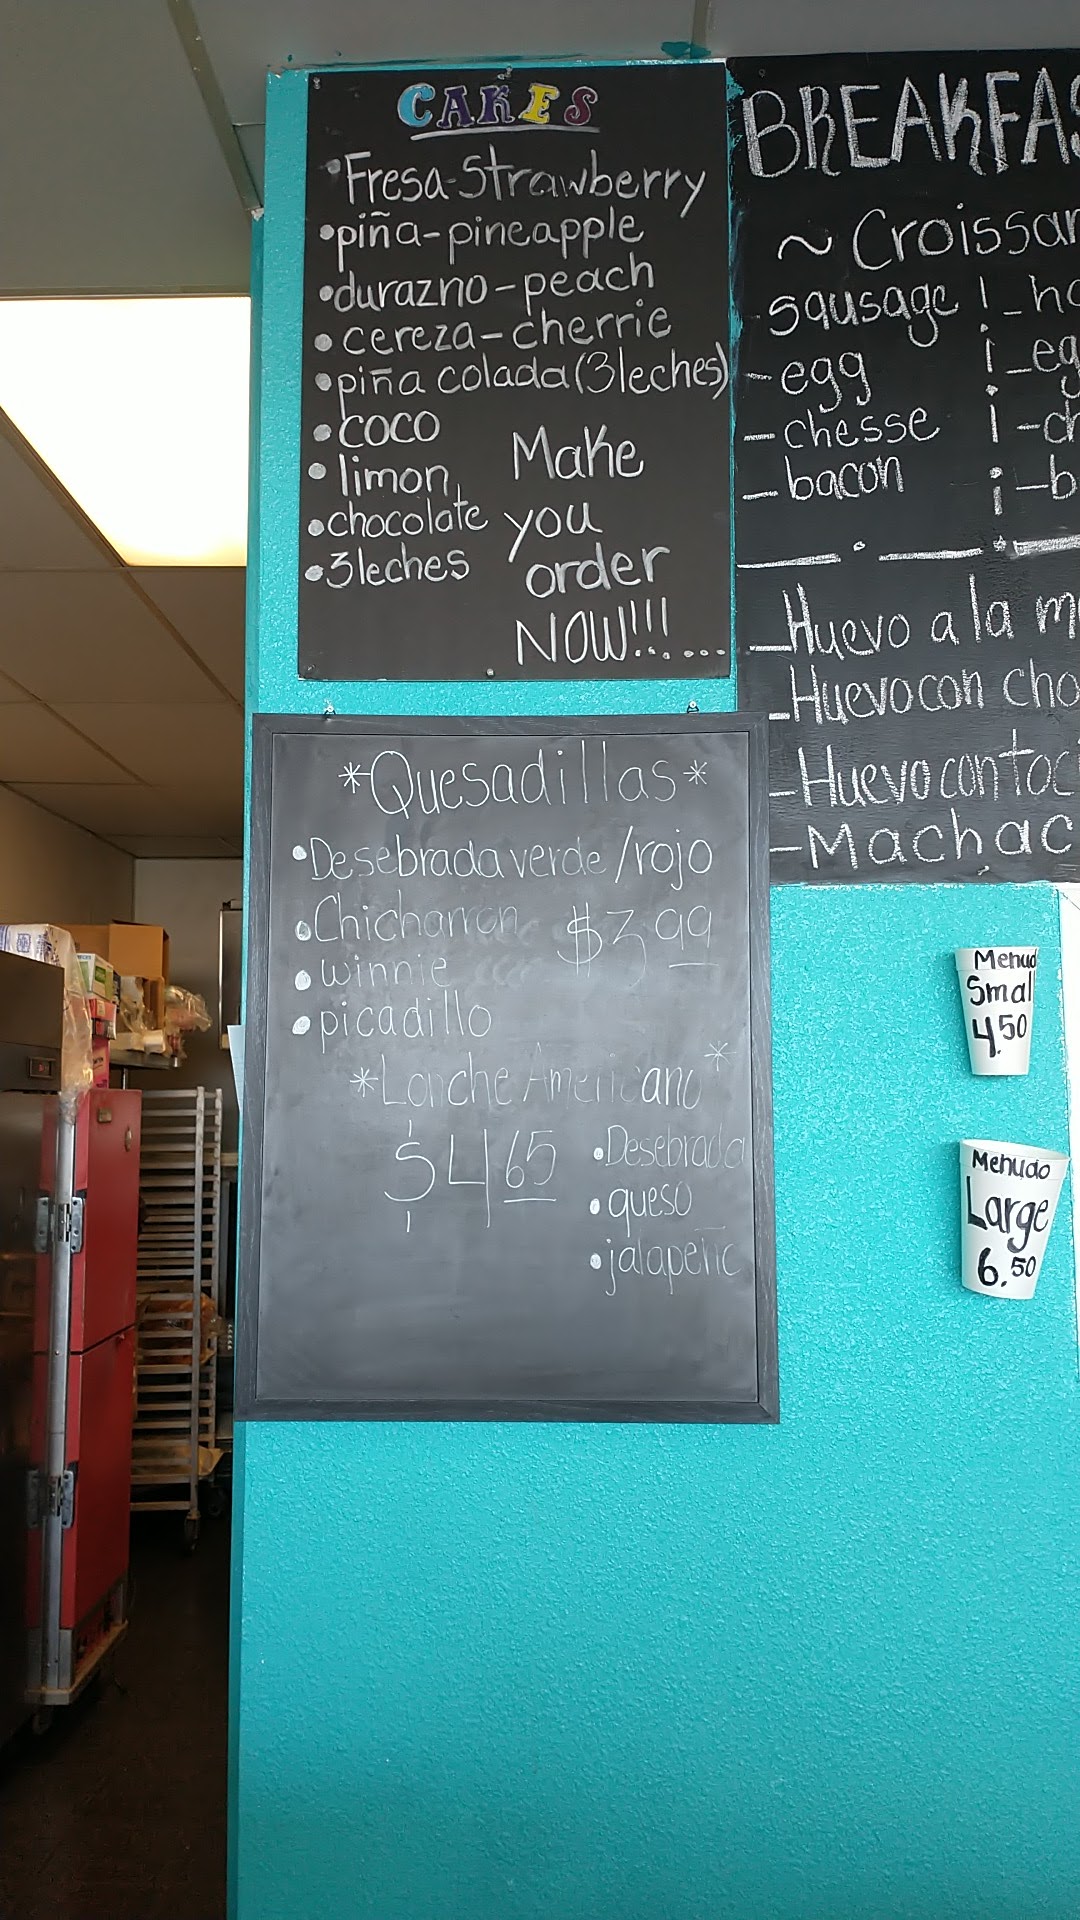 CAKES
•Fresa-Strawberry
•piña-pineapple
•durazno-peach
•cereza-cherrie
•piña colada(3leches)
•coco
•limon
•chocolate
•3leches
Make
you
order
NOW!!!.....
BREAKFAS
~ Croissan
-sausage
-egg
-chesse
-bacon
-Huevo a la m
-Huevo con cho
-Huevo con toc
-Machac
*Quesadillas*
•Desebrada verde/rojo
•Chicharron $3.99
•winnie
•picadillo
*Lonche Americano*
$4.65
•Desebrada
•queso
•jalapeño
Menudo
Small
4.50
Menudo
Large
6.50